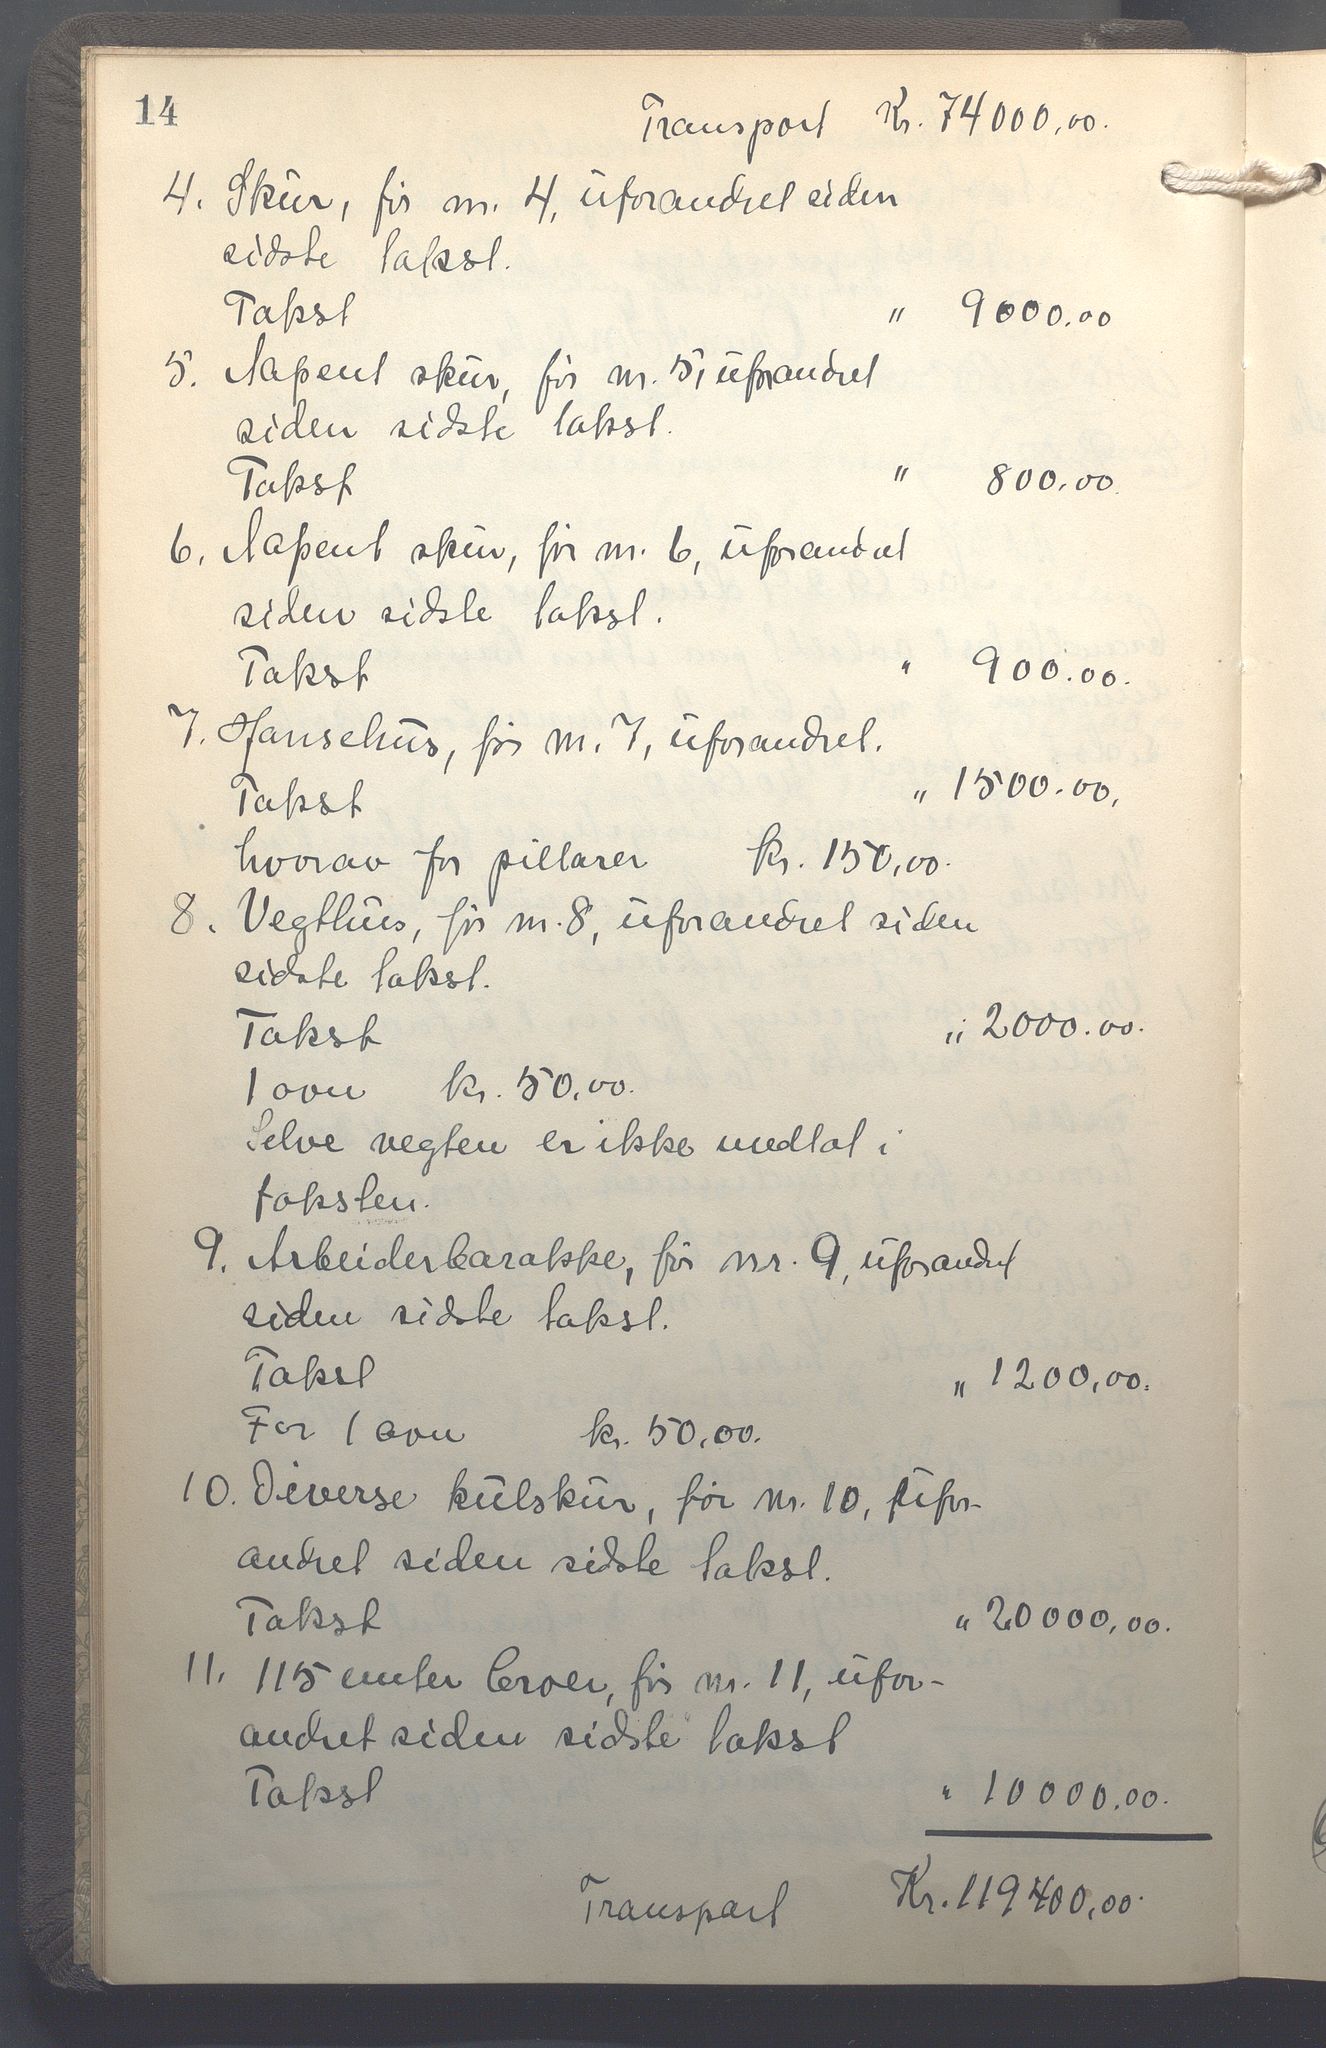 14
Transport Kr. 74000,00.
4. Skur, før nr. 4, uforandret siden
sidste takst.
Takst " 9000.00
5. Aapent skur, før nr. 5, uforandret
siden sidste takst.
Takst " 800.00.
6. Aapent skur, før nr. 6, uforandret
siden sidste takst.
Takst " 900.00.
7. Hansehus, før nr. 7, uforandret.
Takst " 1500.00.
hvorav for pillarer kr. 150,00.
8. Vegthus, før nr. 8, uforandret siden
sidste takst.
Takst " 2000.00.
1 ovn kr. 50,00.
Selve vegten er ikke medtat i
taksten.
9. Arbeiderbarakke, før nr. 9, uforandret
siden sidste takst.
Takst " 1200,00.
For 1 ovn kr. 50,00.
10. Diverse kulskur, før nr. 10, ufor-
andret siden sidste takst.
Takst " 20000,00.
11. 115 meter broer, før nr. 11, ufor-
andret siden sidste takst
Takst " 10000.00.
Transport Kr. 119400,00.